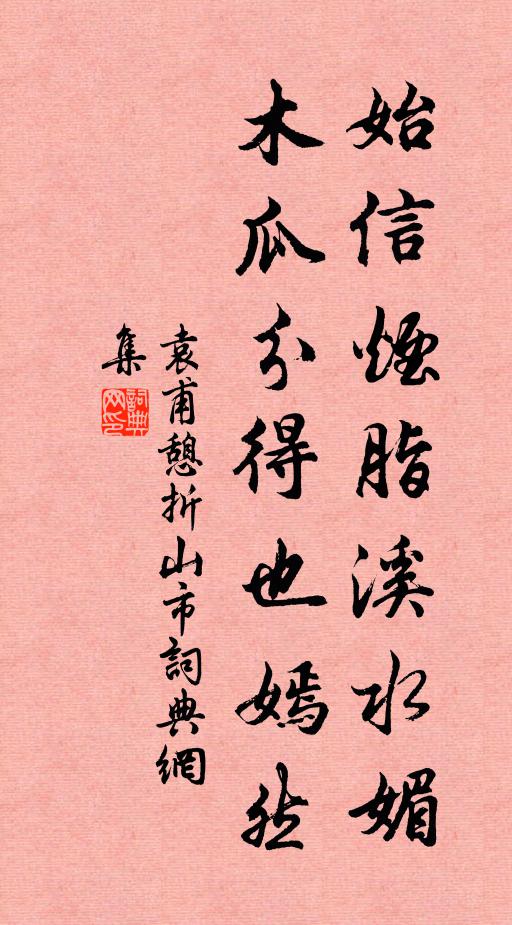 始信煙脂溪水媚
木瓜分得也嫣然
袁甫憩折山市詞典網
集
詞典
网印